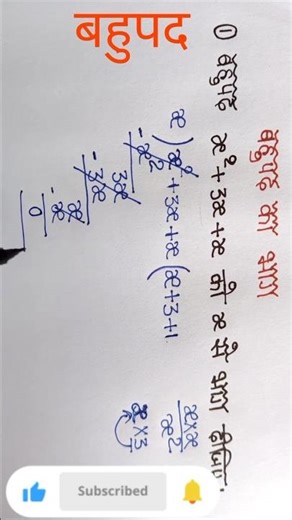 बहुपद
बहुपद का भाग
① बहुपद x²+3x+x को x से भाग दीजिए
x)x²+3x+x(x+3+1
-x²
3x
-3x
x
-x
0
x×x
x²
x×3
Subscribed